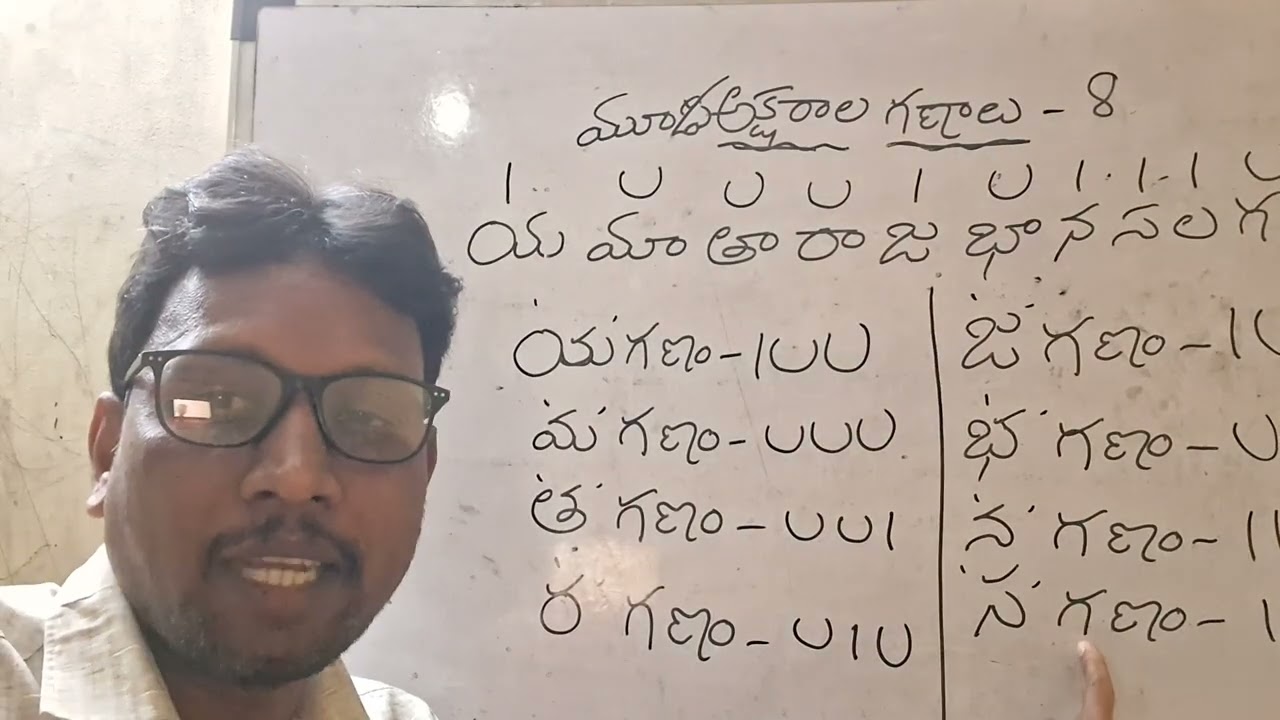 మూడక్షరాల గణాలు - 8
I U U U I U I I I U
య మా తా రా జ భా న స ల గ
య గణం - I U U
మ గణం - U U U
త గణం - U U I
ర గణం - U I U
జ గణం - I U
భ గణం - U
న గణం - I I
స గణం - I